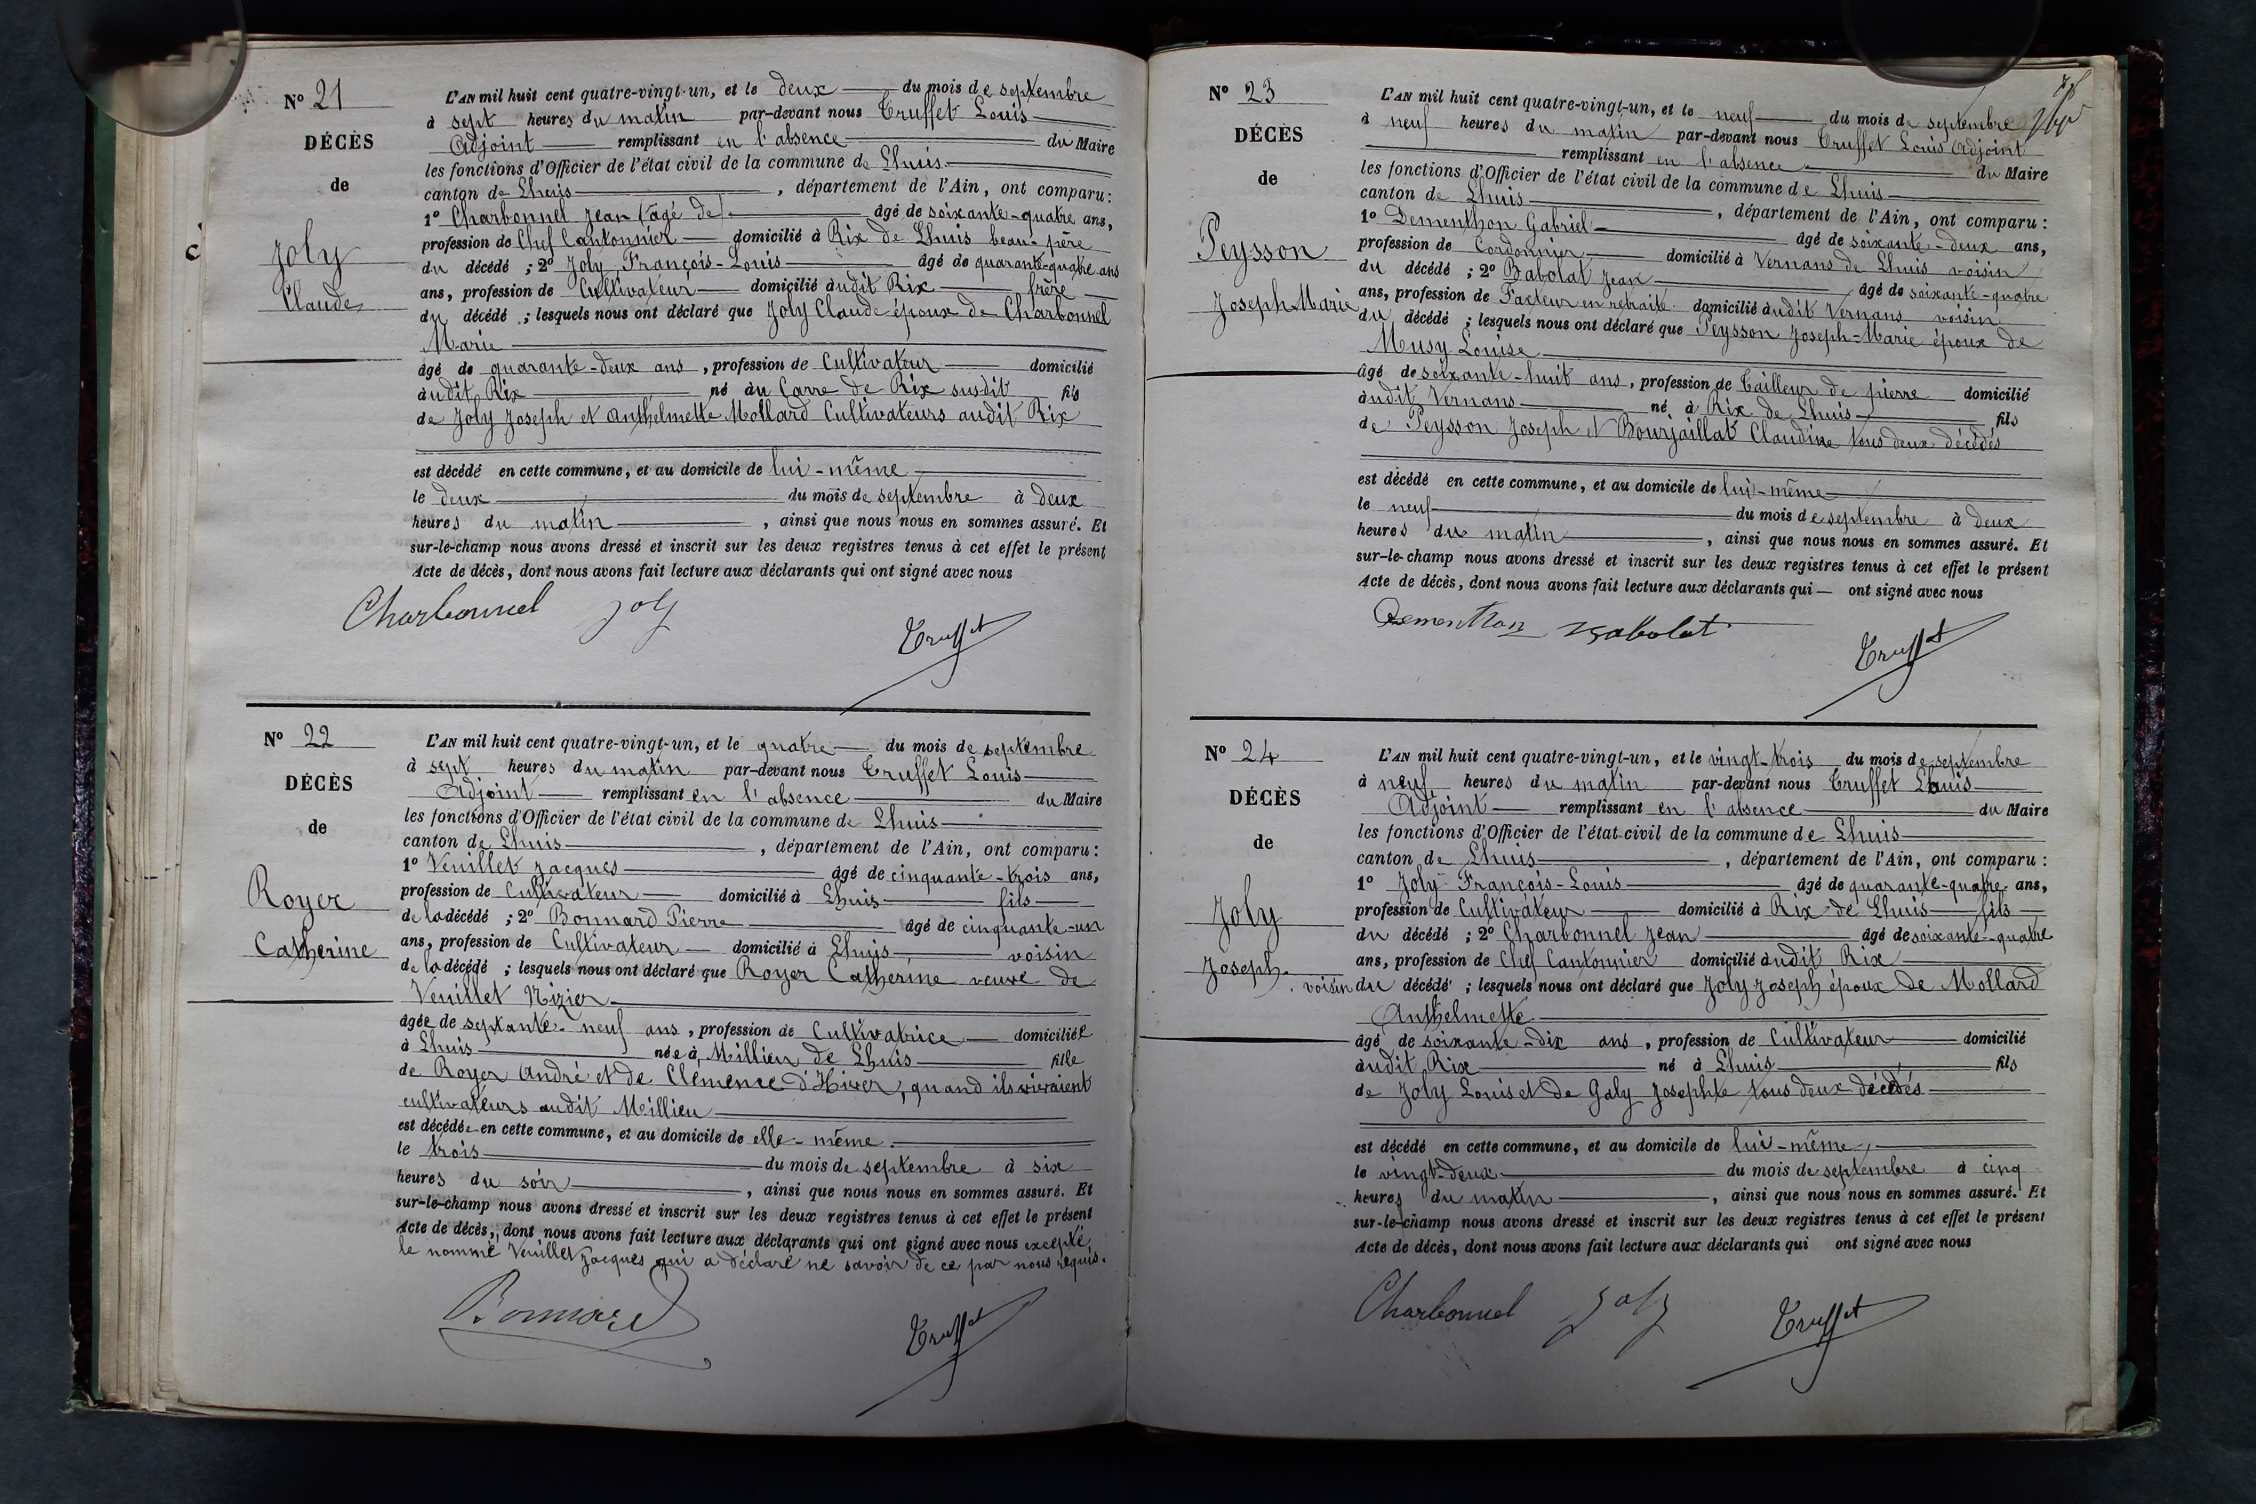 N° 21
DÉCÈS
de
Joly
Claude
L'AN mil huit cent quatre-vingt-un, et le deux du mois de septembre
à sept heures du matin par-devant nous Truffet Louis
Adjoint remplissant en l'absence du Maire
les fonctions d'Officier de l'état civil de la commune de Lhuis
canton de Lhuis, département de l'Ain, ont comparu:
1° Charbonnel Jean (âgé de) âgé de soixante-quatre ans,
profession de Chef Cantonnier domicilié à Rix de Lhuis beau-père
du décédé ; 2° Joly François-Louis âgé de quarante-quatre ans
ans, profession de Cultivateur domicilié audit Rix frère
du décédé ; lesquels nous ont déclaré que Joly Claude époux de Charbonnel
Marie
âgé de quarante-deux ans, profession de Cultivateur domicilié
audit Rix né au Carre de Rix susdit fils
de Joly Joseph et Anthelmette Mollard Cultivateurs audit Rix
est décédé en cette commune, et au domicile de lui-même
le deux du mois de septembre à deux
heures du matin, ainsi que nous nous en sommes assuré. Et
sur-le-champ nous avons dressé et inscrit sur les deux registres tenus à cet effet le présent
Acte de décès, dont nous avons fait lecture aux déclarants qui ont signé avec nous
Charbonnel Joly
Truffet
N° 22
DÉCÈS
de
Royer
Catherine
L'AN mil huit cent quatre-vingt-un, et le quatre du mois de septembre
à sept heures du matin par-devant nous Truffet Louis
Adjoint remplissant en l'absence du Maire
les fonctions d'Officier de l'état civil de la commune de Lhuis
canton de Lhuis, département de l'Ain, ont comparu:
1° Veuillet Jacques âgé de cinquante-trois ans,
profession de Cultivateur domicilié à Lhuis fils
de la décédé ; 2° Bonnard Pierre âgé de cinquante-un
ans, profession de Cultivateur domicilié à Lhuis voisin
de la décédé ; lesquels nous ont déclaré que Royer Catherine veuve de
Veuillet Nizier
âgée de septante-neuf ans, profession de Cultivatrice domiciliée
à Lhuis née à Millieu de Lhuis fille
de Royer André et de Clémence d'Hiver, quand ils vivraient
cultivateurs audit Millieu
est décédée en cette commune, et au domicile de elle-même
le trois du mois de septembre à six
heures du soir, ainsi que nous nous en sommes assuré. Et
sur-le-champ nous avons dressé et inscrit sur les deux registres tenus à cet effet le présent
Acte de décès, dont nous avons fait lecture aux déclarants qui ont signé avec nous excepté
le nommé Veuillet Jacques qui a déclaré ne savoir de ce par nous requis.
Bonnard
Truffet
N° 23
DÉCÈS
de
Peysson
Joseph Marie
L'AN mil huit cent quatre-vingt-un, et le neuf du mois de septembre
à neuf heures du matin par-devant nous Truffet Louis Adjoint
remplissant en l'absence du Maire
les fonctions d'Officier de l'état civil de la commune de Lhuis
canton de Lhuis, département de l'Ain, ont comparu:
1° Dementhon Gabriel âgé de soixante-deux ans,
profession de Cordonnier domicilié à Vernans de Lhuis voisin
du décédé ; 2° Babolat Jean âgé de soixante-quatre
ans, profession de Facteur en retraite domicilié audit Vernans voisin
du décédé ; lesquels nous ont déclaré que Peysson Joseph-Marie époux de
Musy Louise
âgé de soixante-huit ans, profession de Tailleur de pierre domicilié
audit Vernans né à Rix de Lhuis fils
de Peysson Joseph et Bourjaillat Claudine tous deux décédés
est décédé en cette commune, et au domicile de lui-même
le neuf du mois de septembre à deux
heures du matin, ainsi que nous nous en sommes assuré. Et
sur-le-champ nous avons dressé et inscrit sur les deux registres tenus à cet effet le présent
Acte de décès, dont nous avons fait lecture aux déclarants qui ont signé avec nous
Dementhon Babolat
Truffet
N° 24
DÉCÈS
de
Joly
Joseph
L'AN mil huit cent quatre-vingt-un, et le vingt-trois du mois de septembre
à neuf heures du matin par-devant nous Truffet Louis
Adjoint remplissant en l'absence du Maire
les fonctions d'Officier de l'état civil de la commune de Lhuis
canton de Lhuis, département de l'Ain, ont comparu:
1° Joly François-Louis âgé de quarante-quatre ans,
profession de Cultivateur domicilié à Rix de Lhuis fils
du décédé ; 2° Charbonnel Jean âgé de soixante-quatre
ans, profession de Chef Cantonnier domicilié audit Rix
voisin du décédé ; lesquels nous ont déclaré que Joly Joseph époux de Mollard
Anthelmette
âgé de soixante-dix ans, profession de Cultivateur domicilié
audit Rix né à Lhuis fils
de Joly Louis et de Galy Josephte tous deux décédés
est décédé en cette commune, et au domicile de lui-même,
le vingt-deux du mois de septembre à cinq
heures du matin, ainsi que nous nous en sommes assuré. Et
sur-le-champ nous avons dressé et inscrit sur les deux registres tenus à cet effet le présent
Acte de décès, dont nous avons fait lecture aux déclarants qui ont signé avec nous
Charbonnel Joly Truffet